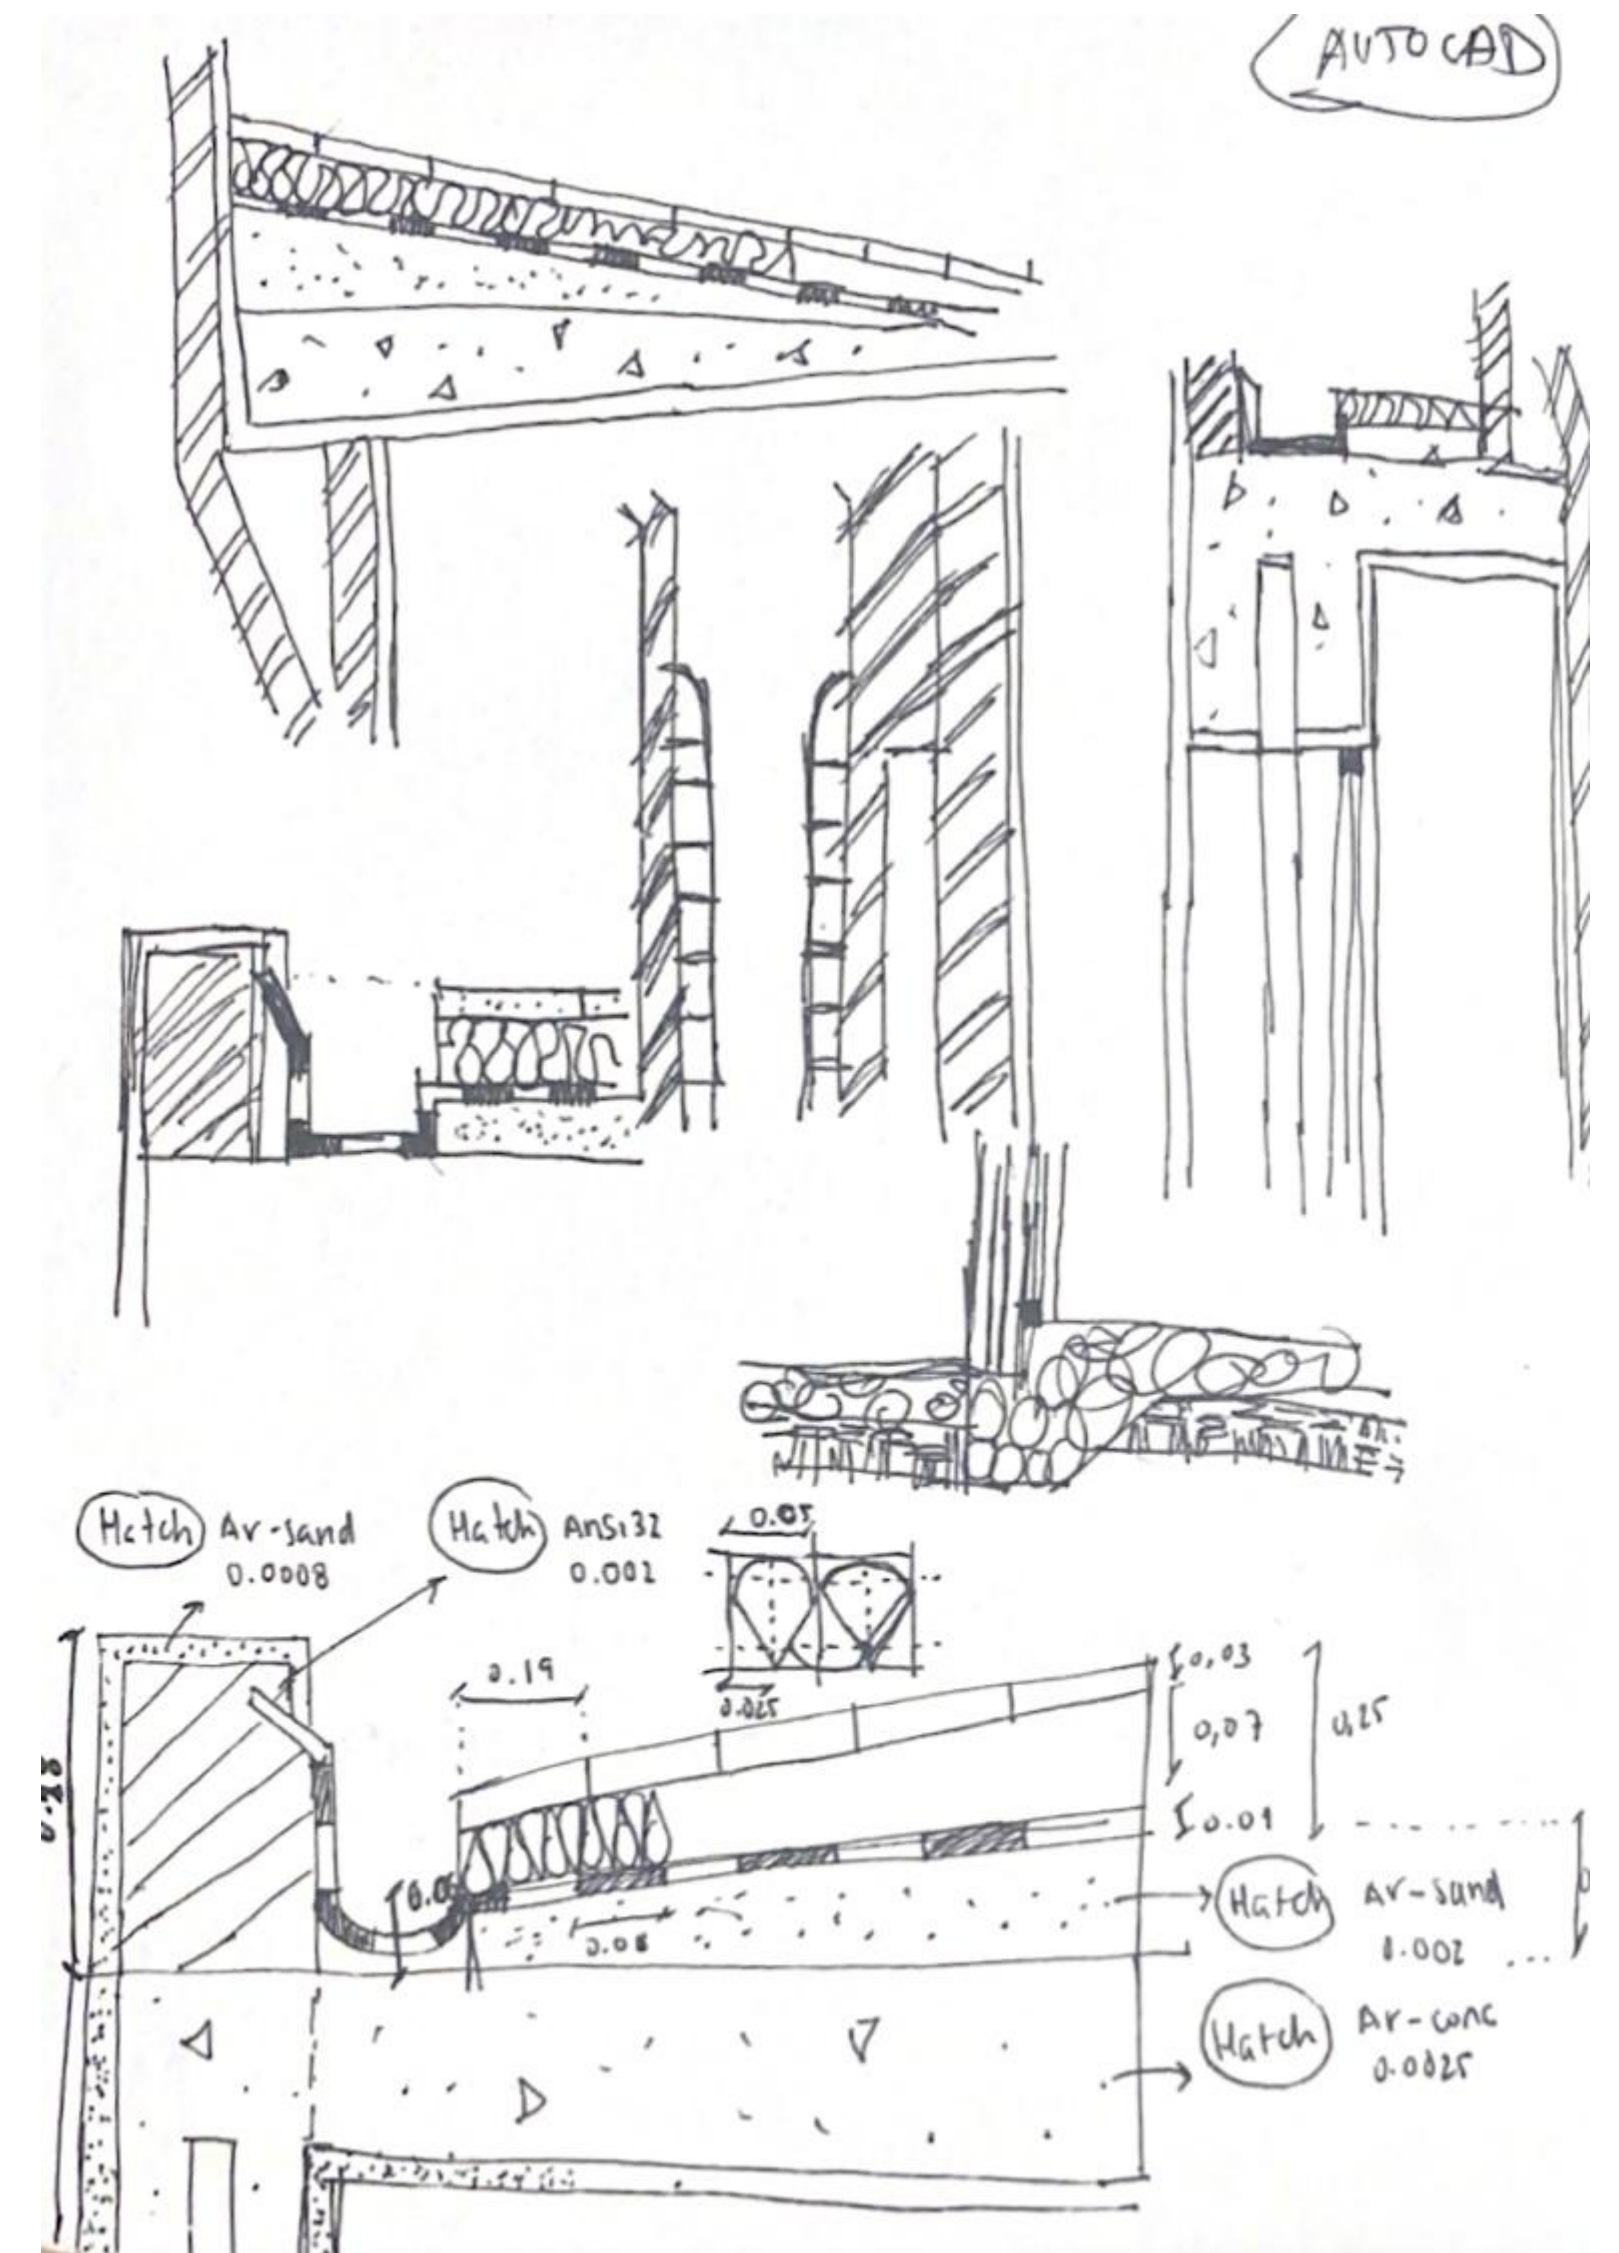 AUTOCAD
Hatch Ar-sand
0.0008
Hatch Ansi32
0.002
0.05
0.025
0.19
0,03
0,07
0,25
0.01
0.08
Hatch Ar-sand
0.002
Hatch Ar-conc
0.0025